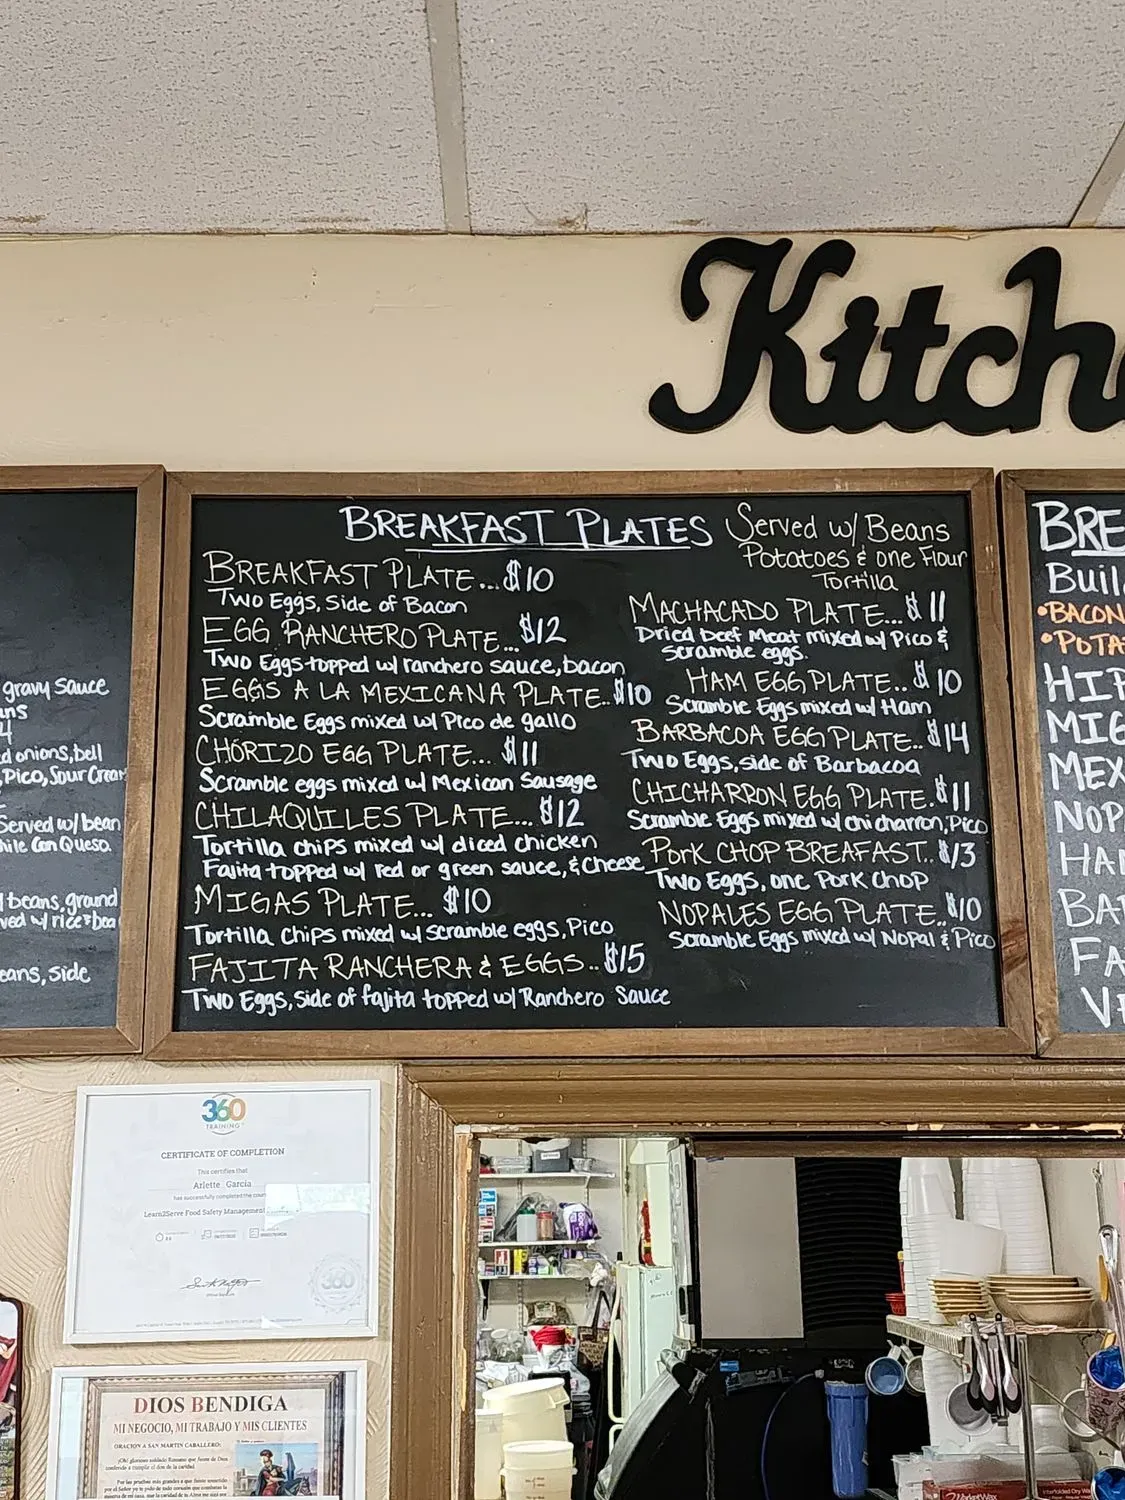 Kitche
gravy sauce
4
d onions, bell
, Pico, Sour Cream
Served w/ bean
hile Con Queso.
beans, ground
ved w/ rice & bea
eans, side
BREAKFAST PLATES Served w/ Beans
Potatoes & one Flour
Tortilla
BREAKFAST PLATE... $10
Two Eggs, Side of Bacon
EGG RANCHERO PLATE... $12
Two Eggs topped w/ ranchero sauce, bacon
EGGS A LA MEXICANA PLATE.. $10
Scramble Eggs mixed w/ Pico de gallo
CHORIZO EGG PLATE... $11
Scramble eggs mixed w/ Mexican Sausage
CHILAQUILES PLATE... $12
Tortilla chips mixed w/ diced chicken
Fajita topped w/ red or green sauce, & cheese
MIGAS PLATE... $10
Tortilla chips mixed w/ scramble eggs, Pico
FAJITA RANCHERA & EGGS.. $15
Two Eggs, side of fajita topped w/ Ranchero Sauce
MACHACADO PLATE... $11
Dried beef Meat mixed w/ Pico &
scramble eggs.
HAM EGG PLATE.. $10
Scramble Eggs mixed w/ Ham
BARBACOA EGG PLATE.. $14
Two Eggs, side of Barbacoa
CHICHARRON EGG PLATE. $11
Scramble Eggs mixed w/ chicharron, Pico
PORK CHOP BREAFAST.. $13
Two Eggs, one Pork chop
NOPALES EGG PLATE.. $10
Scramble Eggs mixed w/ Nopal & Pico
BRE
Buil
•BACON
•POTA
HA
MIG
MEX
NOP
HA
BA
FA
V
360
TRAINING
CERTIFICATE OF COMPLETION
This certifies that
Arlette Garcia
has successfully completed the cour
Learn2Serve Food Safety Management
DIOS BENDIGA
MI NEGOCIO, MI TRABAJO Y MIS CLIENTES
ORACION A SAN MARTIN CABALLERO: